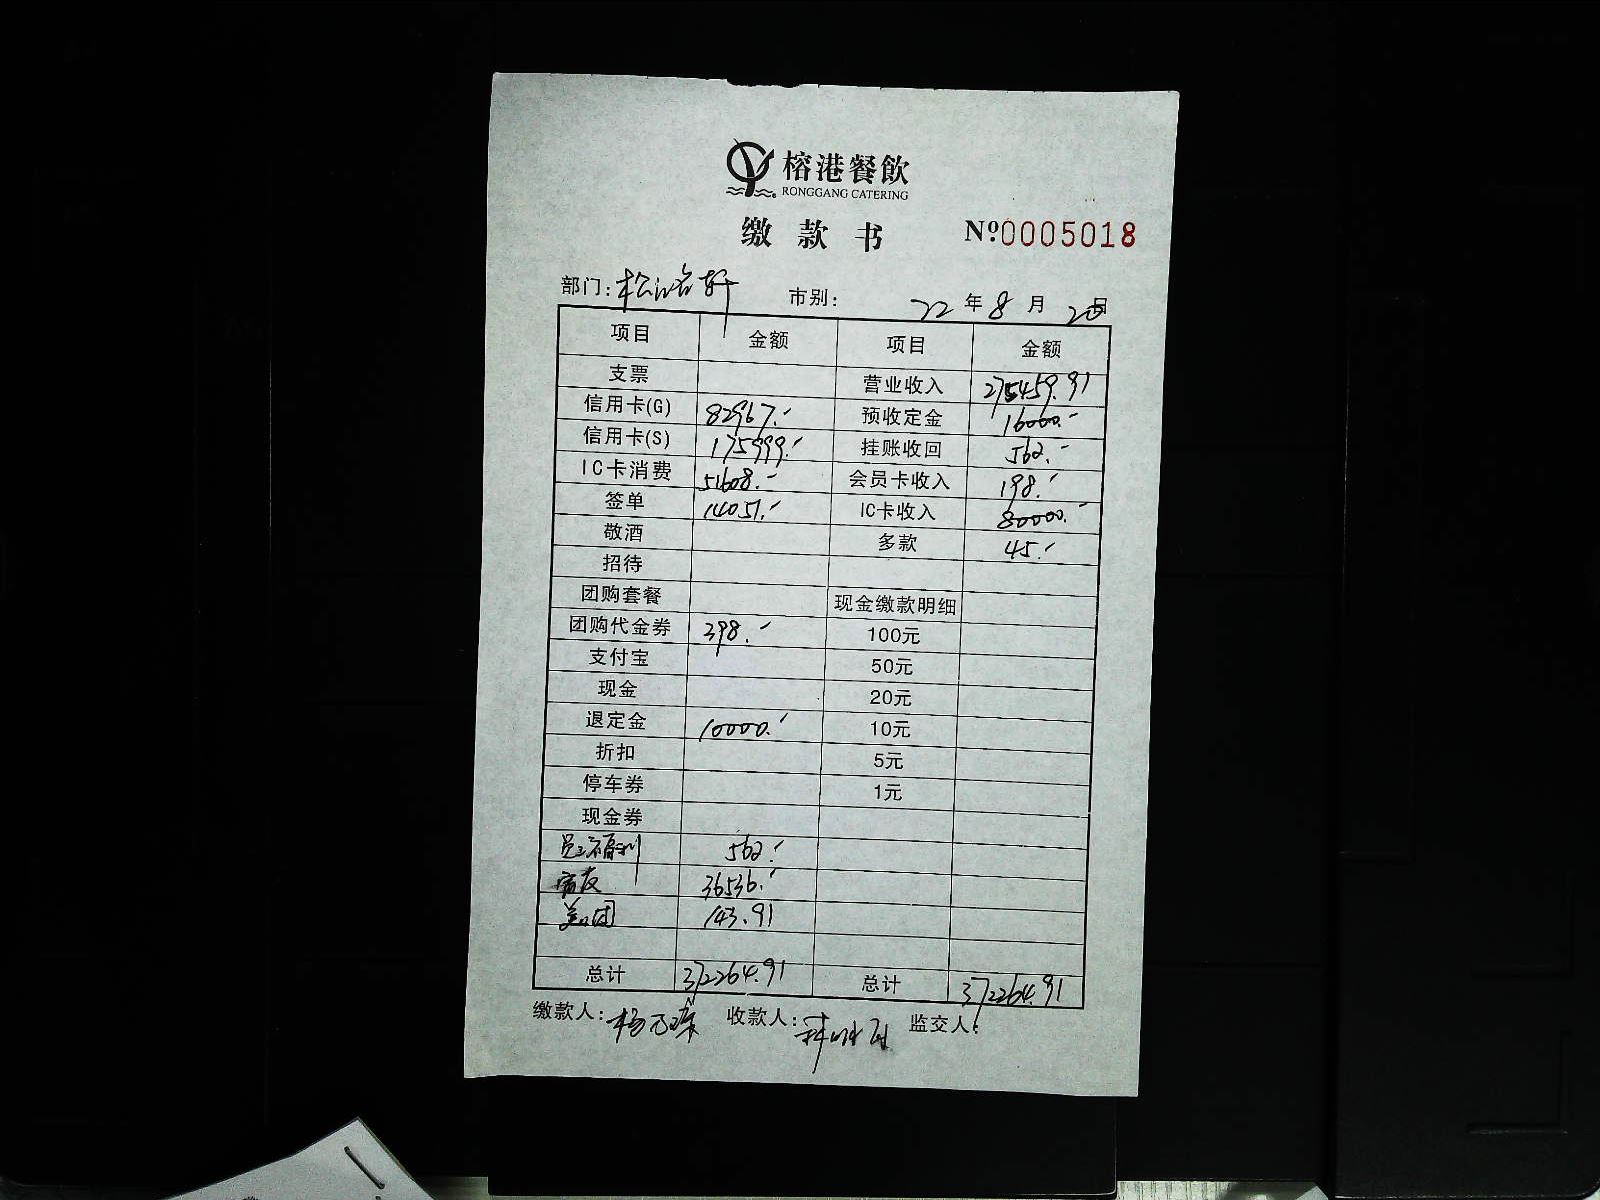 榕港餐飲
RONGGANG CATERING
缴款书 Nº0005018
部门: 市别: 22年8月 日
项目 金额 项目 金额
支票 营业收入 275459.91
信用卡(G) 82967.- 预收定金 16000.-
信用卡(S) 175999.- 挂账收回 562.-
IC卡消费 51608.- 会员卡收入 198.-
签单 14051.- IC卡收入 80000.-
敬酒 多款 45.-
招待
团购套餐 现金缴款明细
团购代金券 398.- 100元
支付宝 50元
现金 20元
退定金 10000.- 10元
折扣 5元
停车券 1元
现金券
员工福利 562.-
36536.-
美团 143.91
总计 372264.91 总计 372264.91
缴款人: 收款人: 监交人: